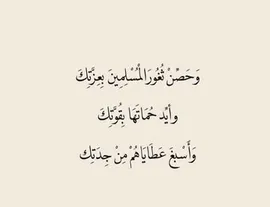 وَحَصِّنْ ثُغُورَ الْمُسْلِمِينَ بِعِزَّتِكَ
وأَيِّدْ حُمَاتَهَا بِقُوَّتِكَ
وَأَسْبِغْ عَطَايَاهُمْ مِنْ جِدَتِكِ